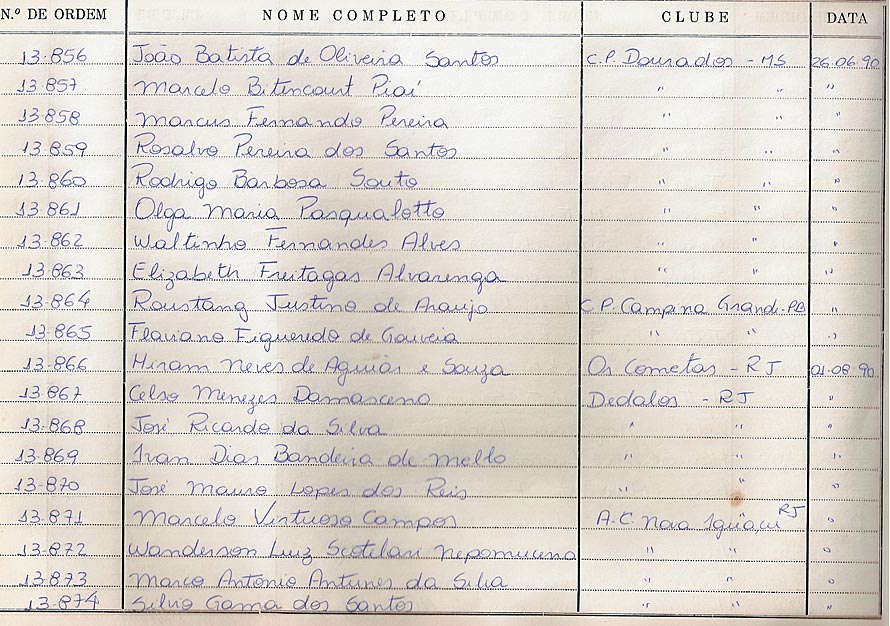 N.º DE ORDEM NOME COMPLETO CLUBE DATA
13.856 João Batista de Oliveira Santos C.P. Dourados - MS 26.06.90
13.857 Marcelo Bitencourt Piaí " " "
13.858 Marcus Fernando Pereira " " "
13.859 Rosalvo Pereira dos Santos " " "
13.860 Rodrigo Barbosa Souto " " "
13.861 Olga Maria Pasqualotto " " "
13.862 Waltinho Fernandes Alves " " "
13.863 Elizabeth Freitagas Alvarenga " " "
13.864 Roustang Justino de Araujo C.P. Campina Grande-PB "
13.865 Flaviano Figueredo de Gouveia " " "
13.866 Hiram Neves de Aguiar e Souza Os Cometas - RJ 01.08.90
13.867 Celso Menezes Damasceno Dedalos - RJ "
13.868 José Ricardo da Silva " " "
13.869 Ivan Dias Bandeira de Mello " " "
13.870 José Mauro Lopes dos Reis " " "
13.871 Marcelo Virtuoso Campos A.C. Nova Iguaçu RJ "
13.872 Wanderson Luiz Scotelari Nepomuceno " " "
13.873 Marco Antonio Antunes da Silva " " "
13.874 Silvio Gama dos Santos " " "